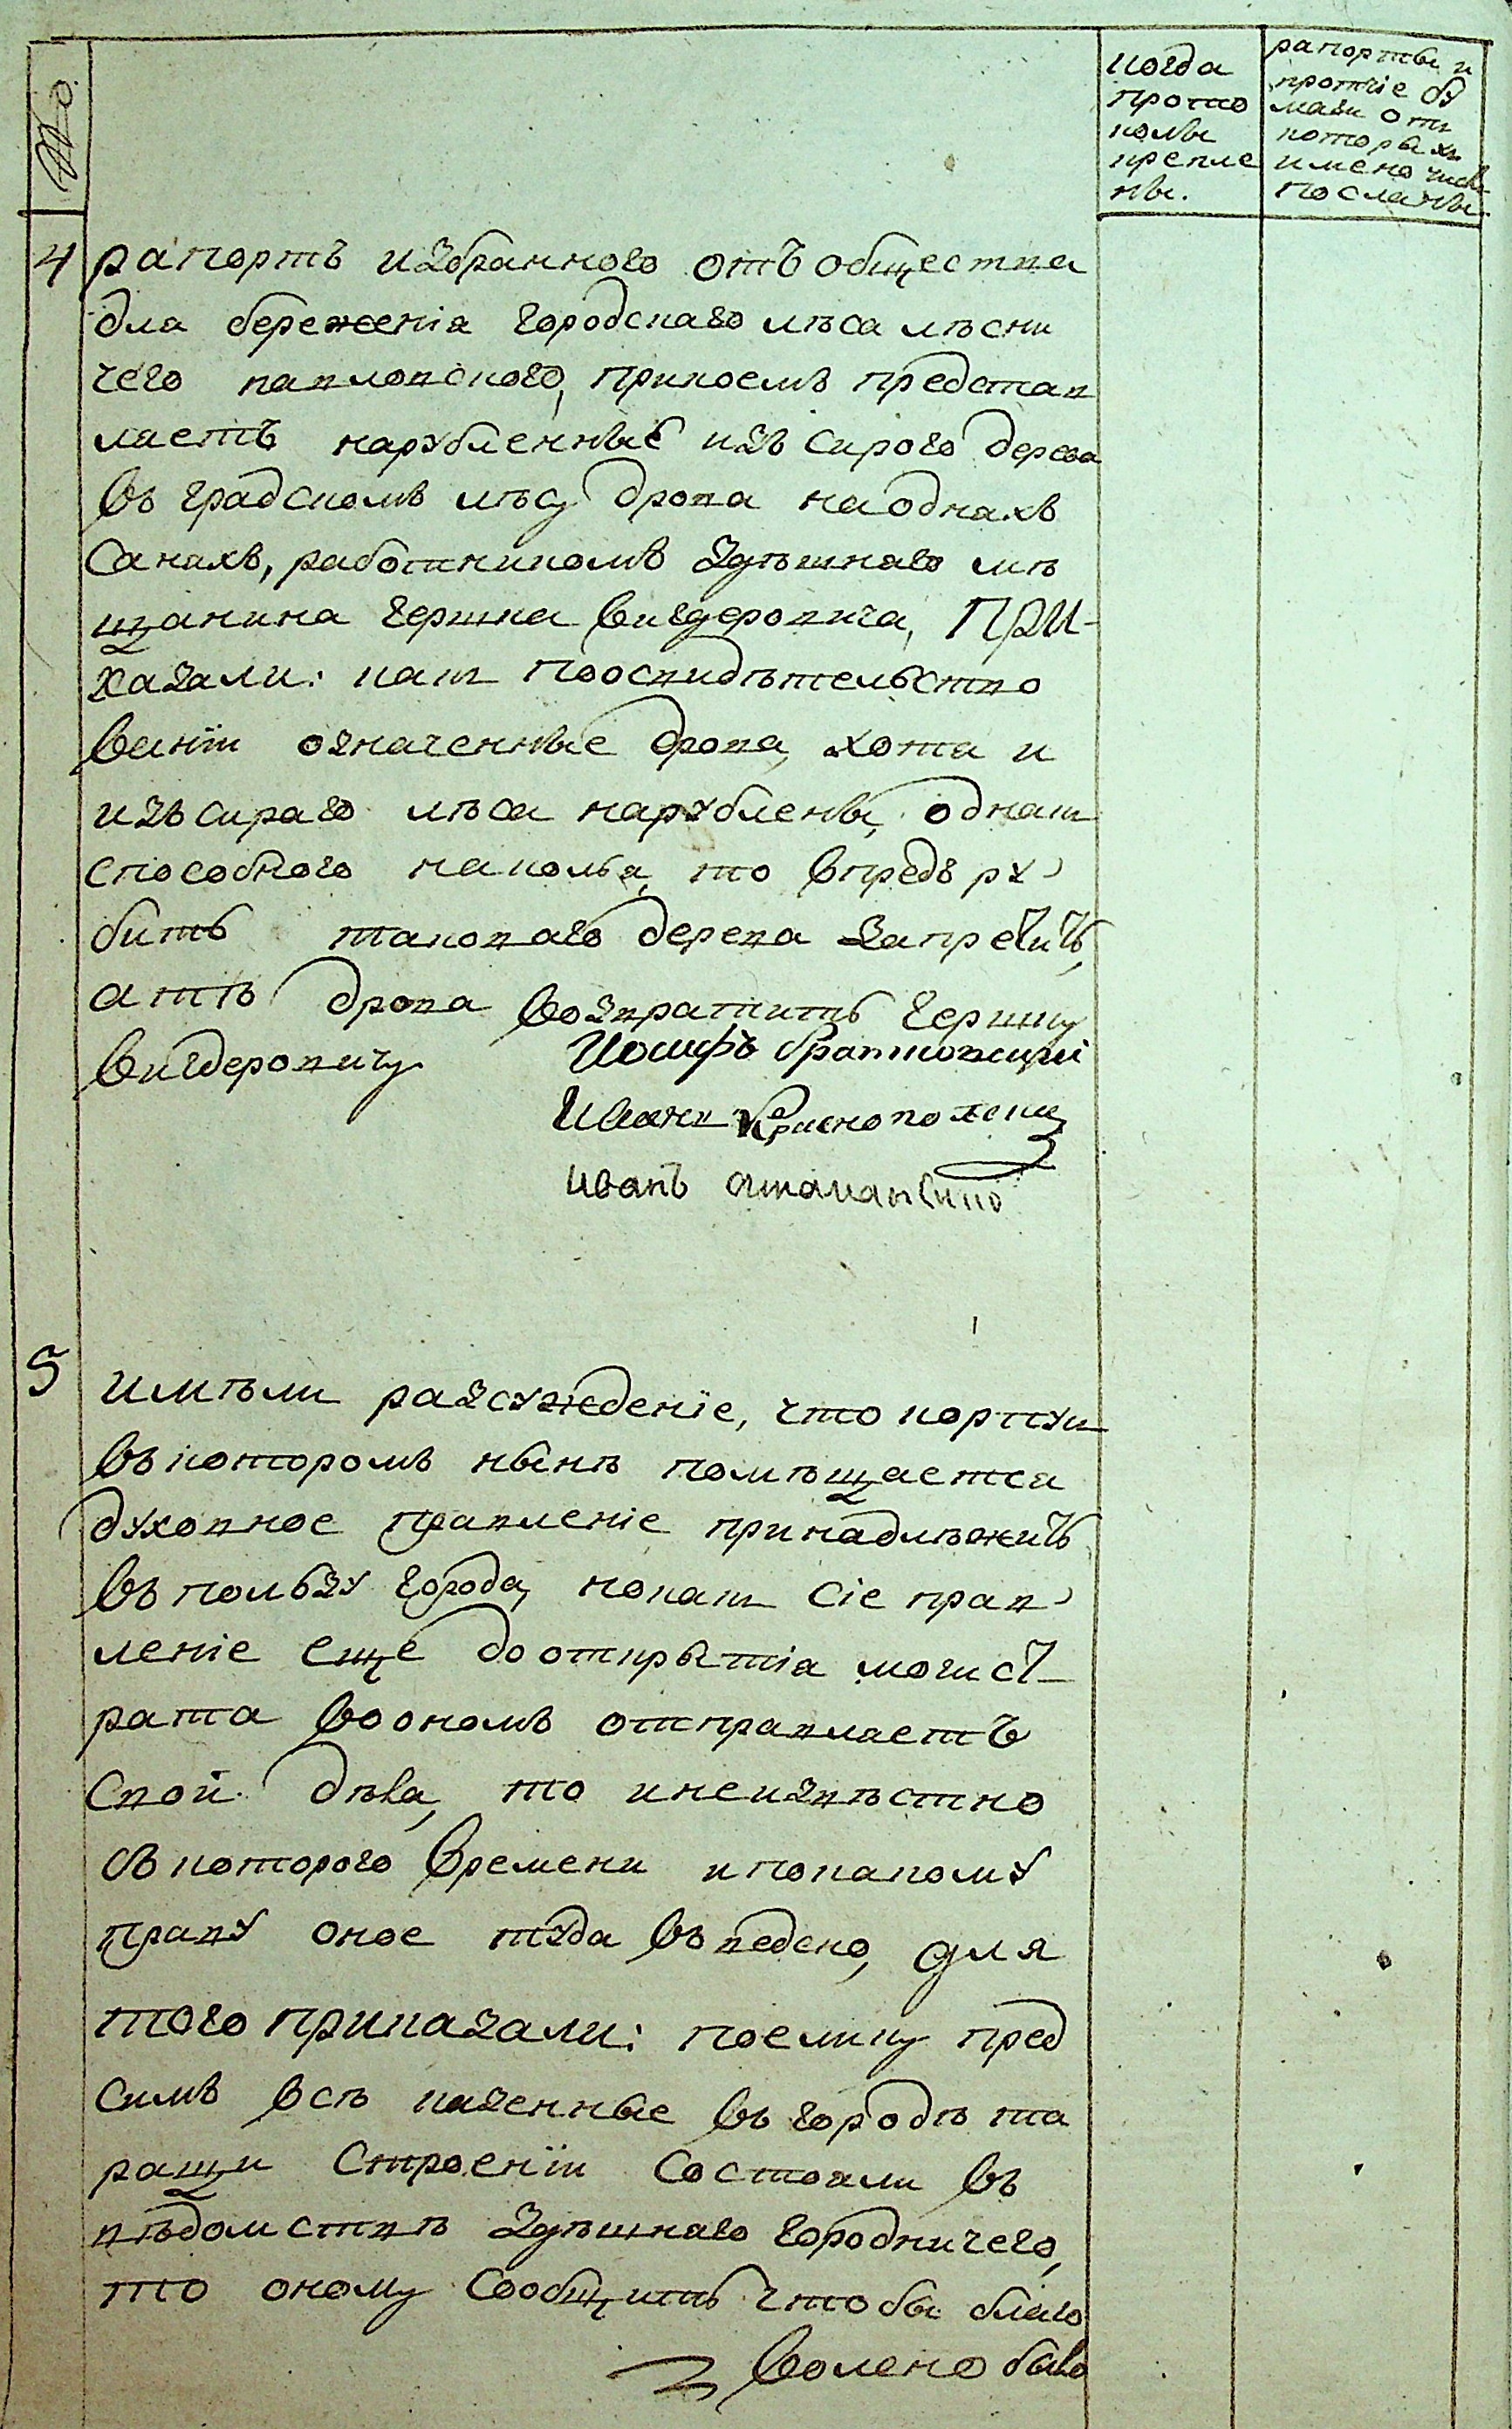 №
когда
прото
колы
крепле
ны.
рапорты и
протчіе бу
маги отъ
которыхъ
имено числъ
посланы.
4
рапортъ избранного отъ общества
для береженія городскаго лѣса лѣсни
чего павловского, прикоемъ представ
ляетъ нарубленные изъ сирого дерева
въ градскомъ лѣсу дрова на однахъ
санахъ, работникомъ здѣшнаго мѣ
щанина Гершка Вигдеровича, При-
казали: какъ поосвидѣтельство
ваніи означенные дрова, хотя и
изъ сираго лѣса нарублены, однак
способного на колья, то впредъ ру
бить таковаго дерева запретить,
а тѣ дрова возвратить Гершку
Вигдеровичу
Иосифъ
Иванъ
Иванъ
5
имѣли разсуждение, что корпус
въ которомъ нынѣ помѣщается
духовное правленіе принадлѣжитъ
въ ползу города, но как сіе прав
леніе еще до открытія магист
рата во ономъ отправляетъ
свои дѣла, то и неизвѣстно
съ которого времени и по какому
праву оное туда въведено, для
того приказали: поелику пред
симъ всѣ казенные въ городѣ та
ращи строеніи состояли въ
вѣдомствѣ здѣшнаго городничего,
то оному сообщить что бы благо
волено было